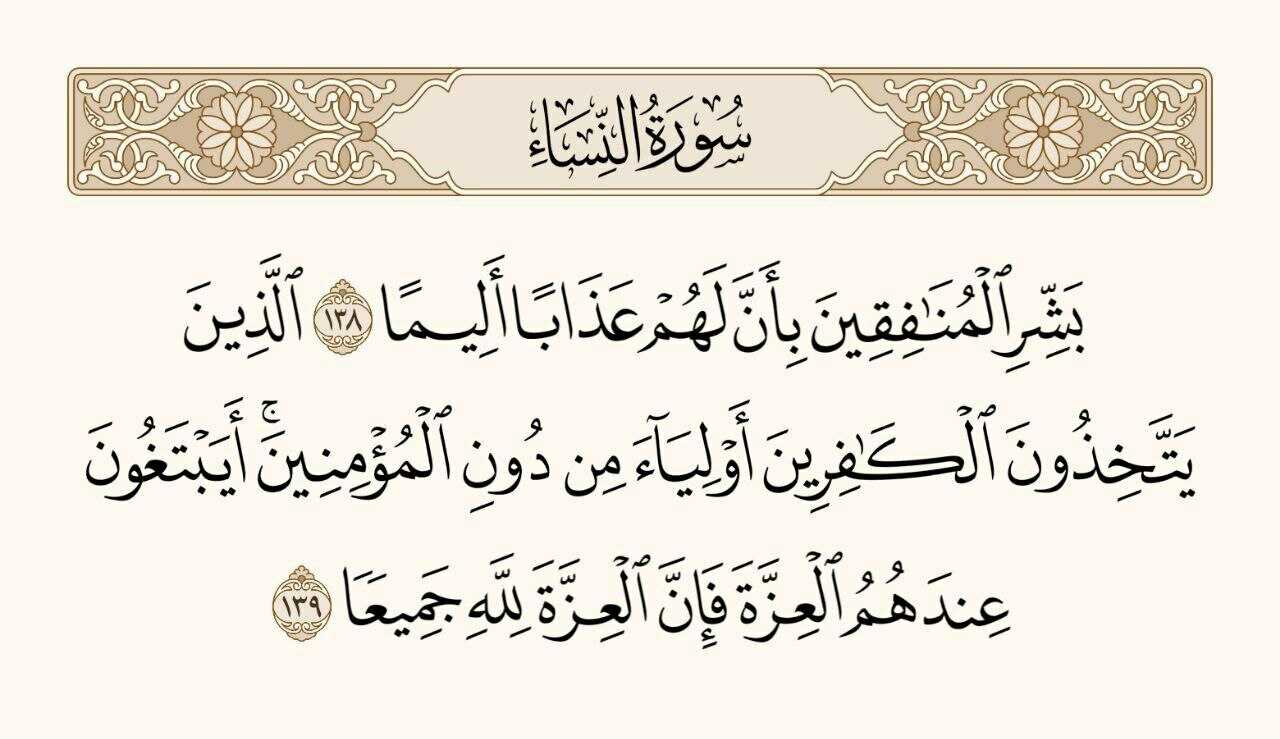 سُورَةُ النِّسَاءِ
بَشِّرِ ٱلْمُنَٰفِقِينَ بِأَنَّ لَهُمْ عَذَابًا أَلِيمًا ١٣٨ ٱلَّذِينَ
يَتَّخِذُونَ ٱلْكَٰفِرِينَ أَوْلِيَآءَ مِن دُونِ ٱلْمُؤْمِنِينَۚ أَيَبْتَغُونَ
عِندَهُمُ ٱلْعِزَّةَ فَإِنَّ ٱلْعِزَّةَ لِلَّهِ جَمِيعًا ١٣٩